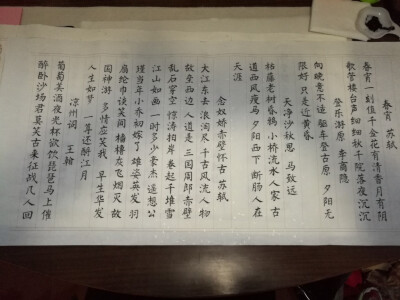 春宵 苏轼
春宵一刻值千金花有清香月有阴
歌管楼台声细细秋千院落夜沉沉
登乐游原 李商隐
向晚意不适 驱车登古原 夕阳无
限好 只是近黄昏
天净沙秋思 马致远
枯藤老树昏鸦 小桥流水人家 古
道西风瘦马 夕阳西下 断肠人在
天涯
念奴娇赤壁怀古 苏轼
大江东去 浪淘尽 千古风流人物
故垒西边 人道是 三国周郎赤壁
乱石穿空 惊涛拍岸 卷起千堆雪
江山如画 一时多少豪杰 遥想公
瑾当年 小乔初嫁了 雄姿英发 羽
扇纶巾 谈笑间 樯橹灰飞烟灭 故
国神游 多情应笑我 早生华发
人生如梦 一尊还酹江月
凉州词 王翰
葡萄美酒夜光杯欲饮琵琶马上催
醉卧沙场君莫笑古来征战几人回